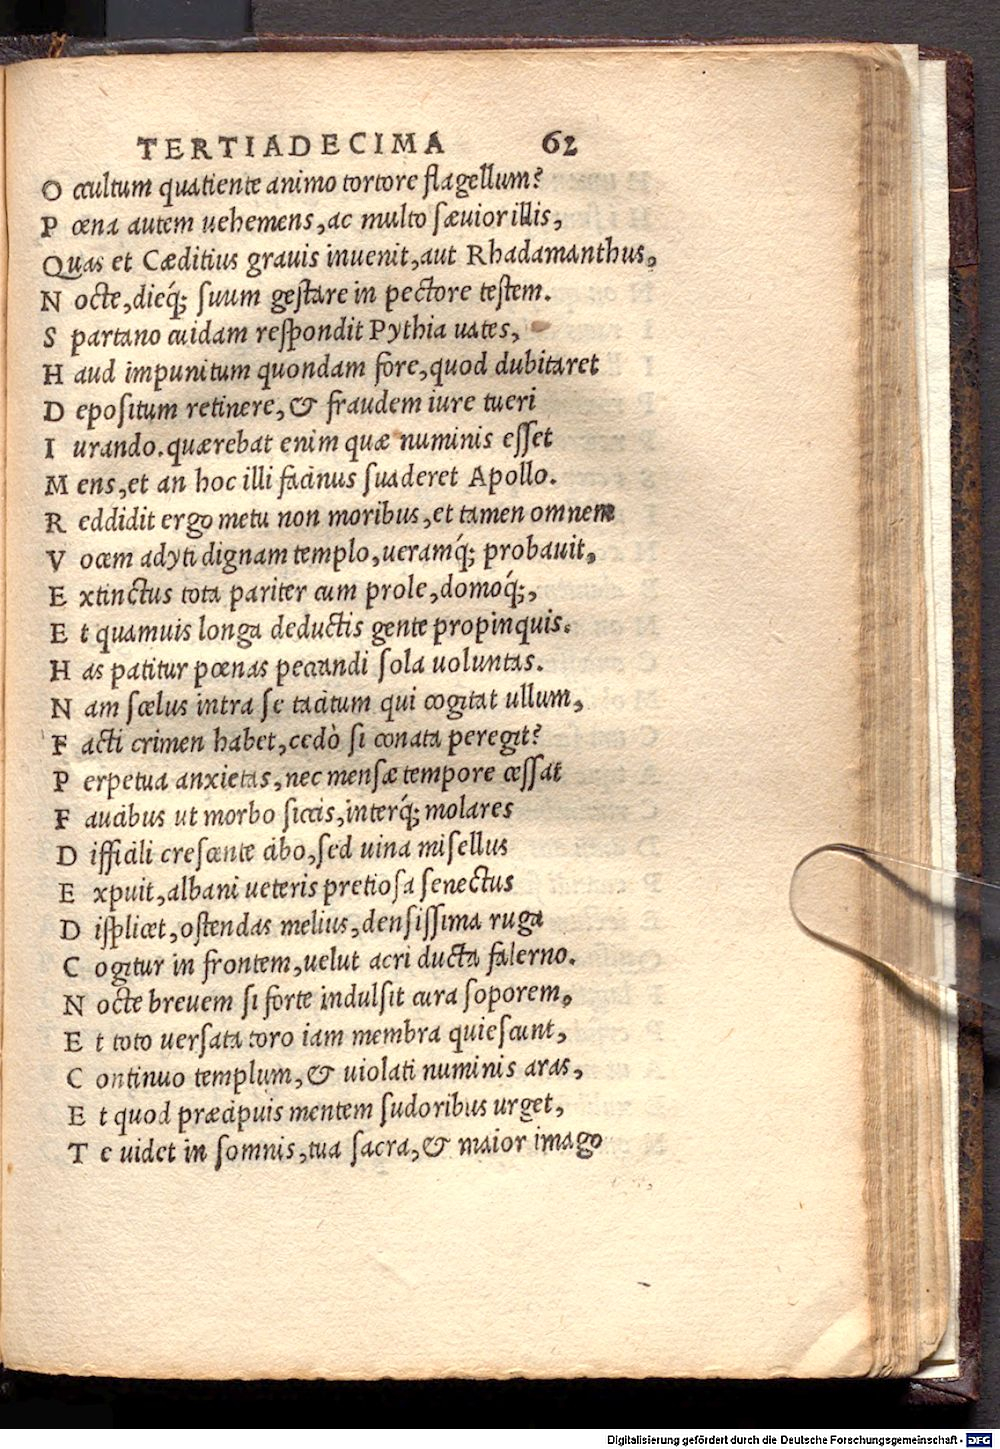 TERTIADECIMA 62
O ccultum quatiente animo tortore flagellum?
P œna autem uehemens, ac multo sæuior illis,
Quas et Cæditius grauis inuenit, aut Rhadamanthus,
N octe, dieq́; suum gestare in pectore testem.
S partano cuidam respondit Pythia uates,
H aud impunitum quondam fore, quod dubitaret
D epositum retinere, & fraudem iure tueri
I urando. quærebat enim quæ numinis esset
M ens, et an hoc illi facinus suaderet Apollo.
R eddidit ergo metu non moribus, et tamen omnem
V ocem adyti dignam templo, ueramq́; probauit,
E xtinctus tota pariter cum prole, domoq́;,
E t quamuis longa deductis gente propinquis.
H as patitur pœnas peccandi sola uoluntas.
N am scelus intra se tacitum qui cogitat ullum,
F acti crimen habet, cedò si conata peregit?
P erpetua anxietas, nec mensæ tempore cessat
F aucibus ut morbo siccis, interq́; molares
D ifficili crescente cibo, sed uina misellus
E xpuit, albani ueteris pretiosa senectus
D isplicet, ostendas melius, densissima ruga
C ogitur in frontem, uelut acri ducta falerno.
N octe breuem si forte indulsit cura soporem,
E t toto uersata toro iam membra quiescunt,
C ontinuo templum, & uiolati numinis aras,
E t quod præcipuis mentem sudoribus urget,
T e uidet in somnis, tua sacra, & maior imago
Digitalisierung gefördert durch die Deutsche Forschungsgemeinschaft - DFG